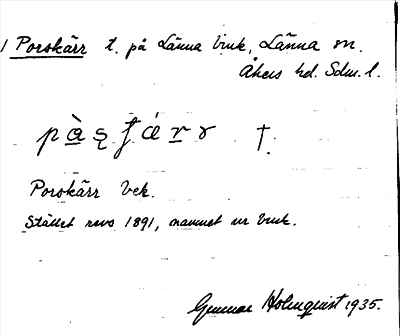 1 Porskärr t. på Länna bruk, Länna sn.
Åkers hd. Sdm. l.
†.
Porskärr Bek.
Stället revs 1891, namnet ur bruk.
Gunnar Holmquist 1935.